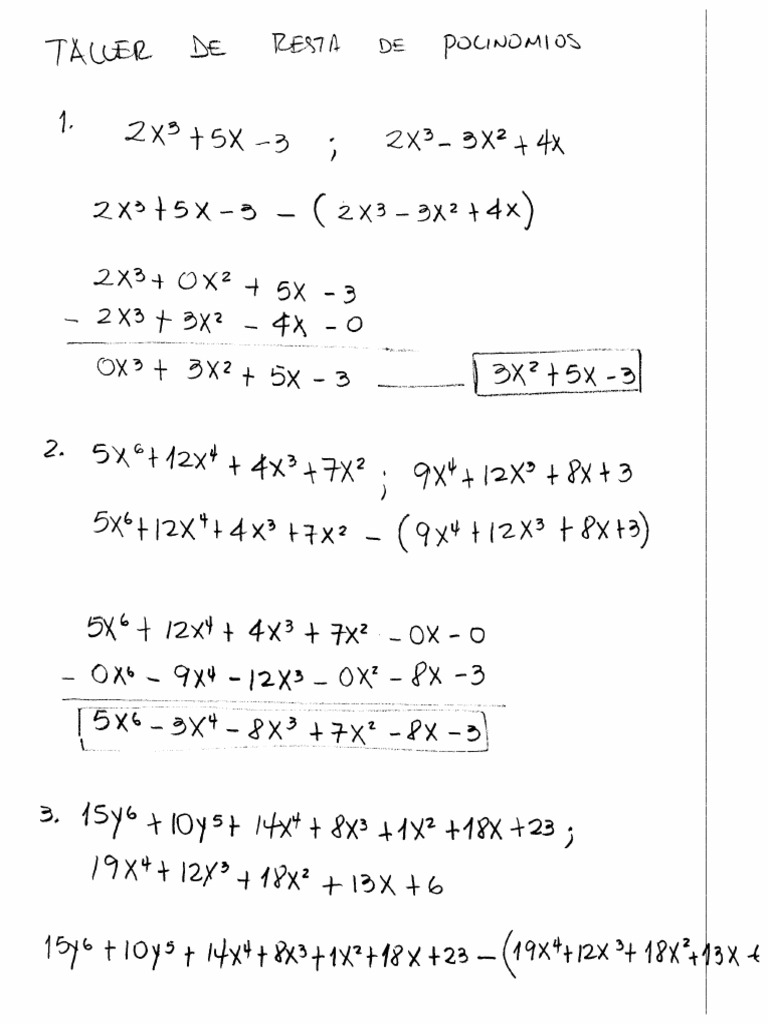 TALLER DE RESTA DE POLINOMIOS
1. 2x³ + 5x - 3 ; 2x³ - 3x² + 4x
2x³ + 5x - 3 - ( 2x³ - 3x² + 4x )
2x³ + 0x² + 5x - 3
- 2x³ + 3x² - 4x - 0
0x³ + 3x² + 5x - 3 3x² + 5x - 3
2. 5x⁶ + 12x⁴ + 4x³ + 7x² ; 9x⁴ + 12x³ + 8x + 3
5x⁶ + 12x⁴ + 4x³ + 7x² - ( 9x⁴ + 12x³ + 8x + 3 )
5x⁶ + 12x⁴ + 4x³ + 7x² - 0x - 0
- 0x⁶ - 9x⁴ - 12x³ - 0x² - 8x - 3
5x⁶ - 3x⁴ - 8x³ + 7x² - 8x - 3
3. 15y⁶ + 10y⁵ + 14x⁴ + 8x³ + 1x² + 18x + 23 ;
19x⁴ + 12x³ + 18x² + 13x + 6
15y⁶ + 10y⁵ + 14x⁴ + 8x³ + 1x² + 18x + 23 - ( 19x⁴ + 12x³ + 18x² + 13x +